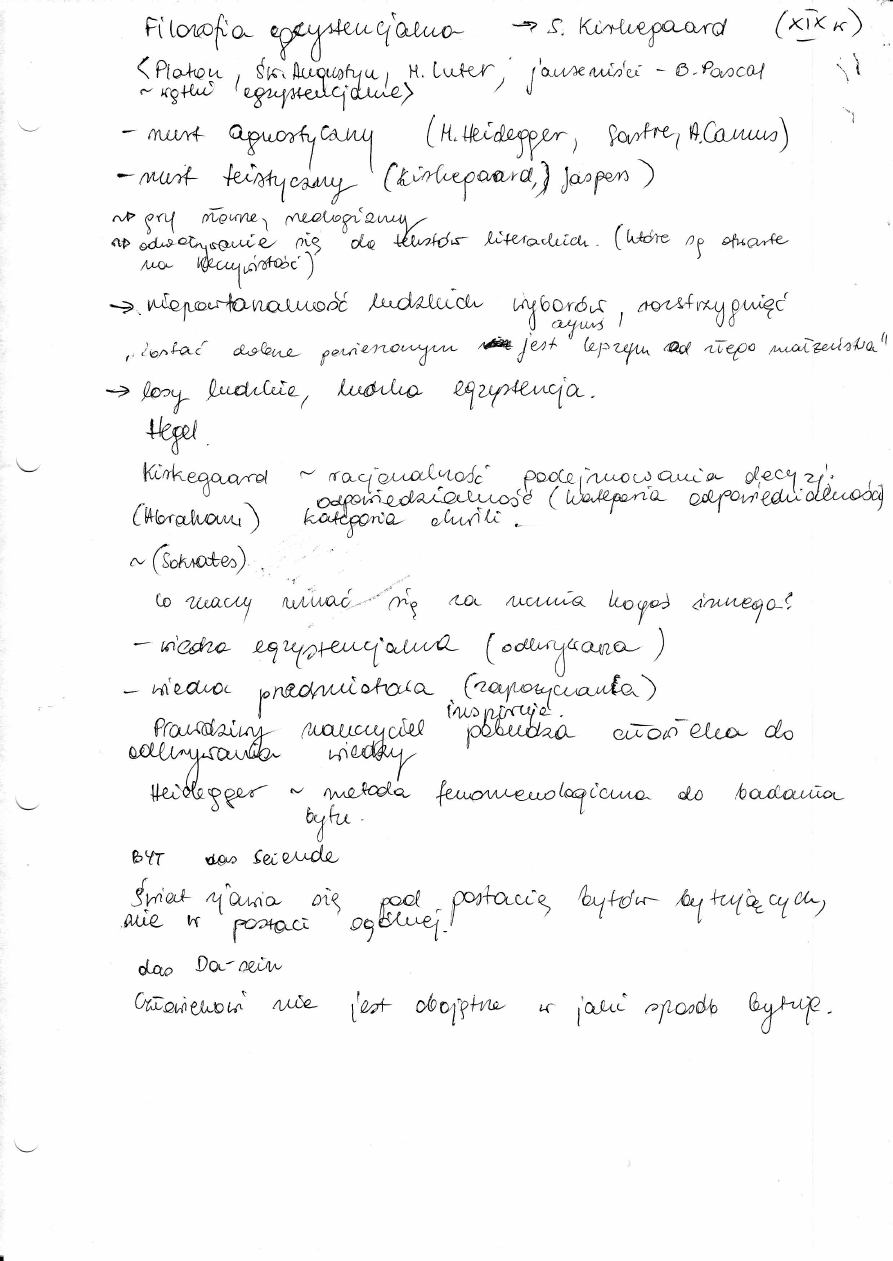 Filozofia egzystencjalna → S. Kirkegaard (XIX w)
<Platon, Św. Augustyn, M. Luter, janseniści - B. Pascal
~ wątki egzystencjalne>
- nurt agnostyczny (M. Heidegger, Sartre, A. Camus)
- nurt teistyczny (Kirkegaard, Jaspers)
gry słowne, neologizmy
odwoływanie się do tekstów literackich. (które są otwarte
na rzeczywistość)
→ niepowtarzalność ludzkich wyborów, rozstrzygnięć
„zostać dobrze powieszonym jest lepszym od złego małżeństwa"
→ losy ludzkie, ludzka egzystencja.
Hegel.
Kirkegaard ~ racjonalność podejmowania decyzji.
odpowiedzialność (kategoria odpowiedzialności)
(Abraham) kategoria chwili.
~ (Sokrates).
Co znaczy uznać się za ucznia kogoś innego?
- wiedza egzystencjalna (odkrywana)
- wiedza przedmiotowa (zapożyczanła)
inspiruje.
Prawdziwy nauczyciel pobudza człowieka do
odkrywania wiedzy
Heidegger ~ metoda fenomenologiczna do badania
bytu.
BYT das Seiende
Świat zjawia się pod postacią bytów bytujących,
nie w postaci ogólnej.
das Da-sein
Człowiekowi nie jest obojętne w jaki sposób bytuje.